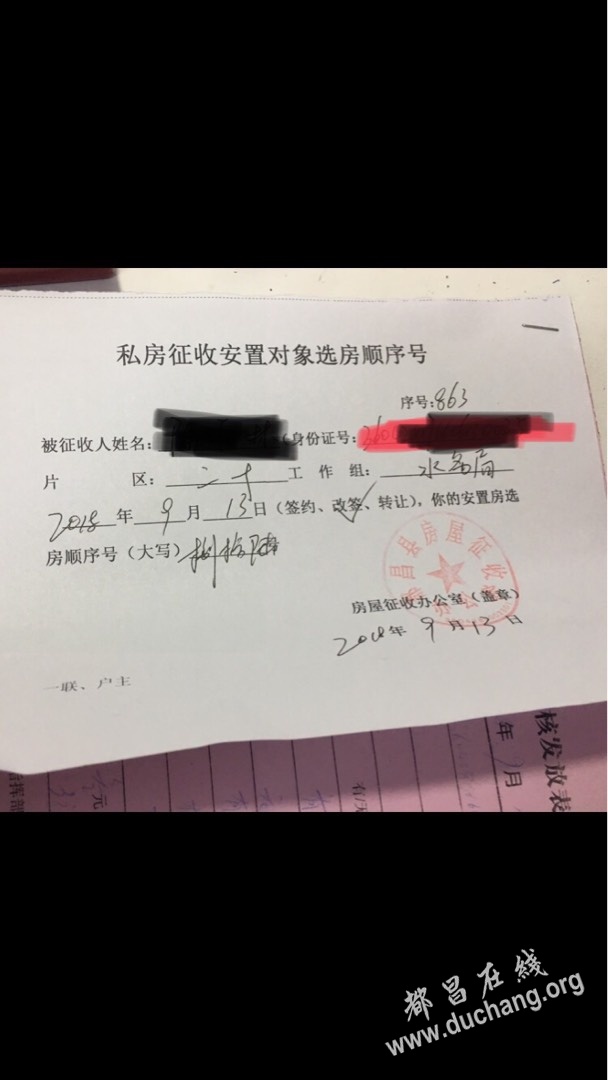 私房征收安置对象选房顺序号
序号:863
被征收人姓名: (身份证号:
片 区: 二十 工作组: 水务局
2018年 9 月 13日(签约、改签、转让),你的安置房选
房顺序号(大写)捌拾陆
昌县房屋征收
办公
房屋征收办公室(盖章)
2018年 9 月 13 日
一联、户主
核发放表
年 月
元
指挥部
都昌在線
www.duchang.org